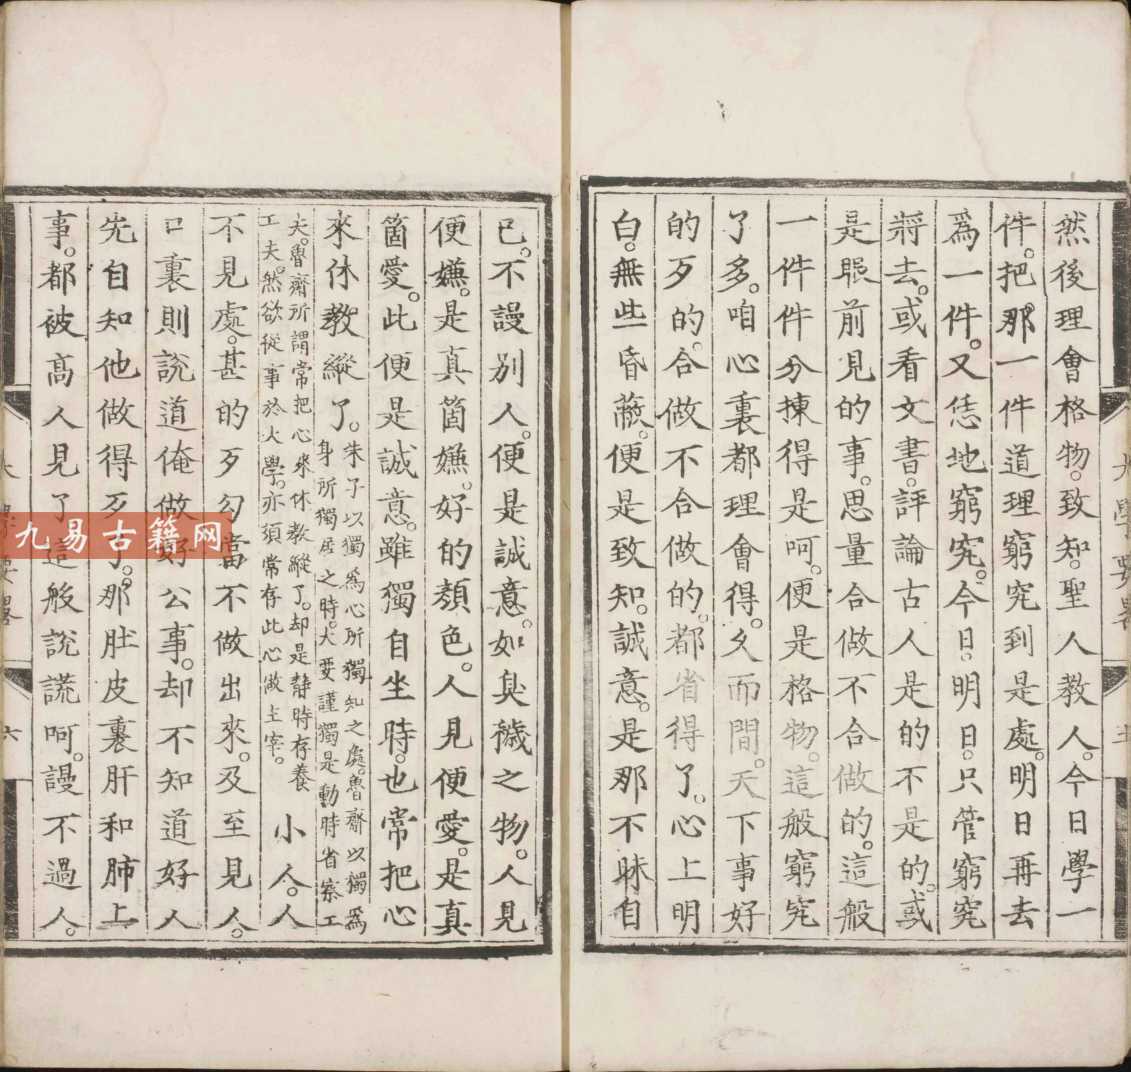 然後理會格物。致知。聖人教人。今日學一
件。把那一件道理窮究到是處。明日再去
爲一件。又恁地窮究。今日。明日。只管窮究
將去。或看文書。評論古人是的不是的。或
是眼前見的事。思量合做不合做的。這般
一件件分揀得是呵。便是格物。這般窮究
了多。咱心裏都理會得。久而間。天下事好
的歹的。合做不合做的。都省得了。心上明
白。無些昏蔽。便是致知。誠意。是那不昧自
己。不謾別人。便是誠意。如臭穢之物。人見
便嫌。是真箇嫌。好的顏色。人見便愛。是真
箇愛。此便是誠意。雖獨自坐時。也常把心
來休教縱了。朱子以獨爲心所獨知之處。魯齋以獨爲
身所獨居之時。大要謹獨是動時省察工
夫。魯齋所謂常把心來休教縱了。却是靜時存養
工夫。然欲從事於大學。亦須常存此心做主宰。
小人。人
不見處。甚的歹勾當不做出來。及至見人。
口裏則說道俺做好公事。却不知道好人
先自知他做得歹了。那肚皮裏肝和肺上
事。都被高人見了。這般說謊呵。謾不過人。
大學要畧
六
大學要畧
九易古籍网